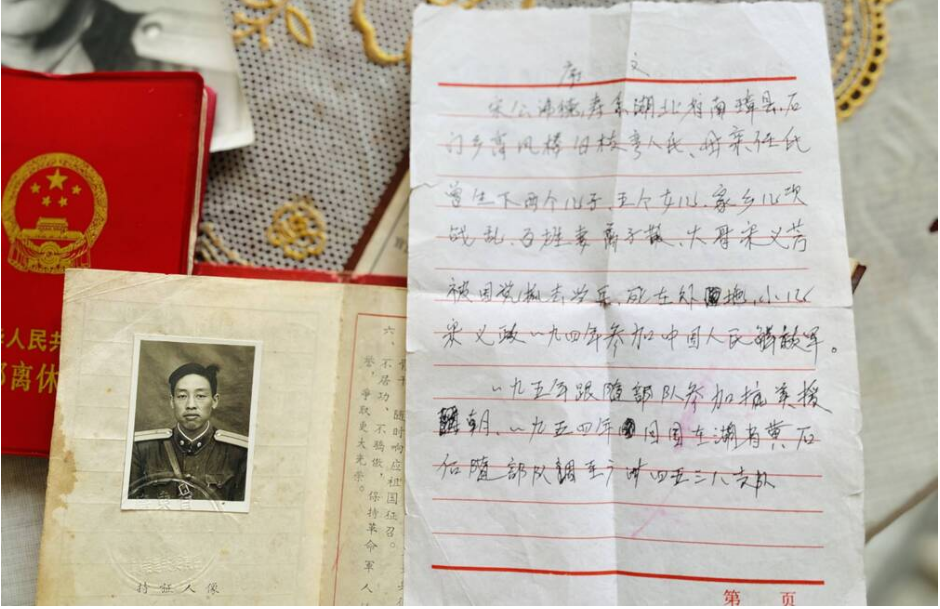 华人民共
部离休
六、
随时响应祖国征召。
不居功、不骄傲，保持革命军人
誉，争取更大光荣。
持证人像
序 文
宋公 系湖北省南漳县石
门乡 人氏、母亲任氏
曾生下两个儿子五个女儿、家乡几次
战乱、百姓妻离子散、大哥宋义芳
被国党抓去当兵，死在外地，小儿
宋义政一九四年参加中国人民解放军。
一九五年跟随部队参加抗美援
朝、一九五四年 回国在湖省黄石
后随部队调至 四五三八支队
第 页